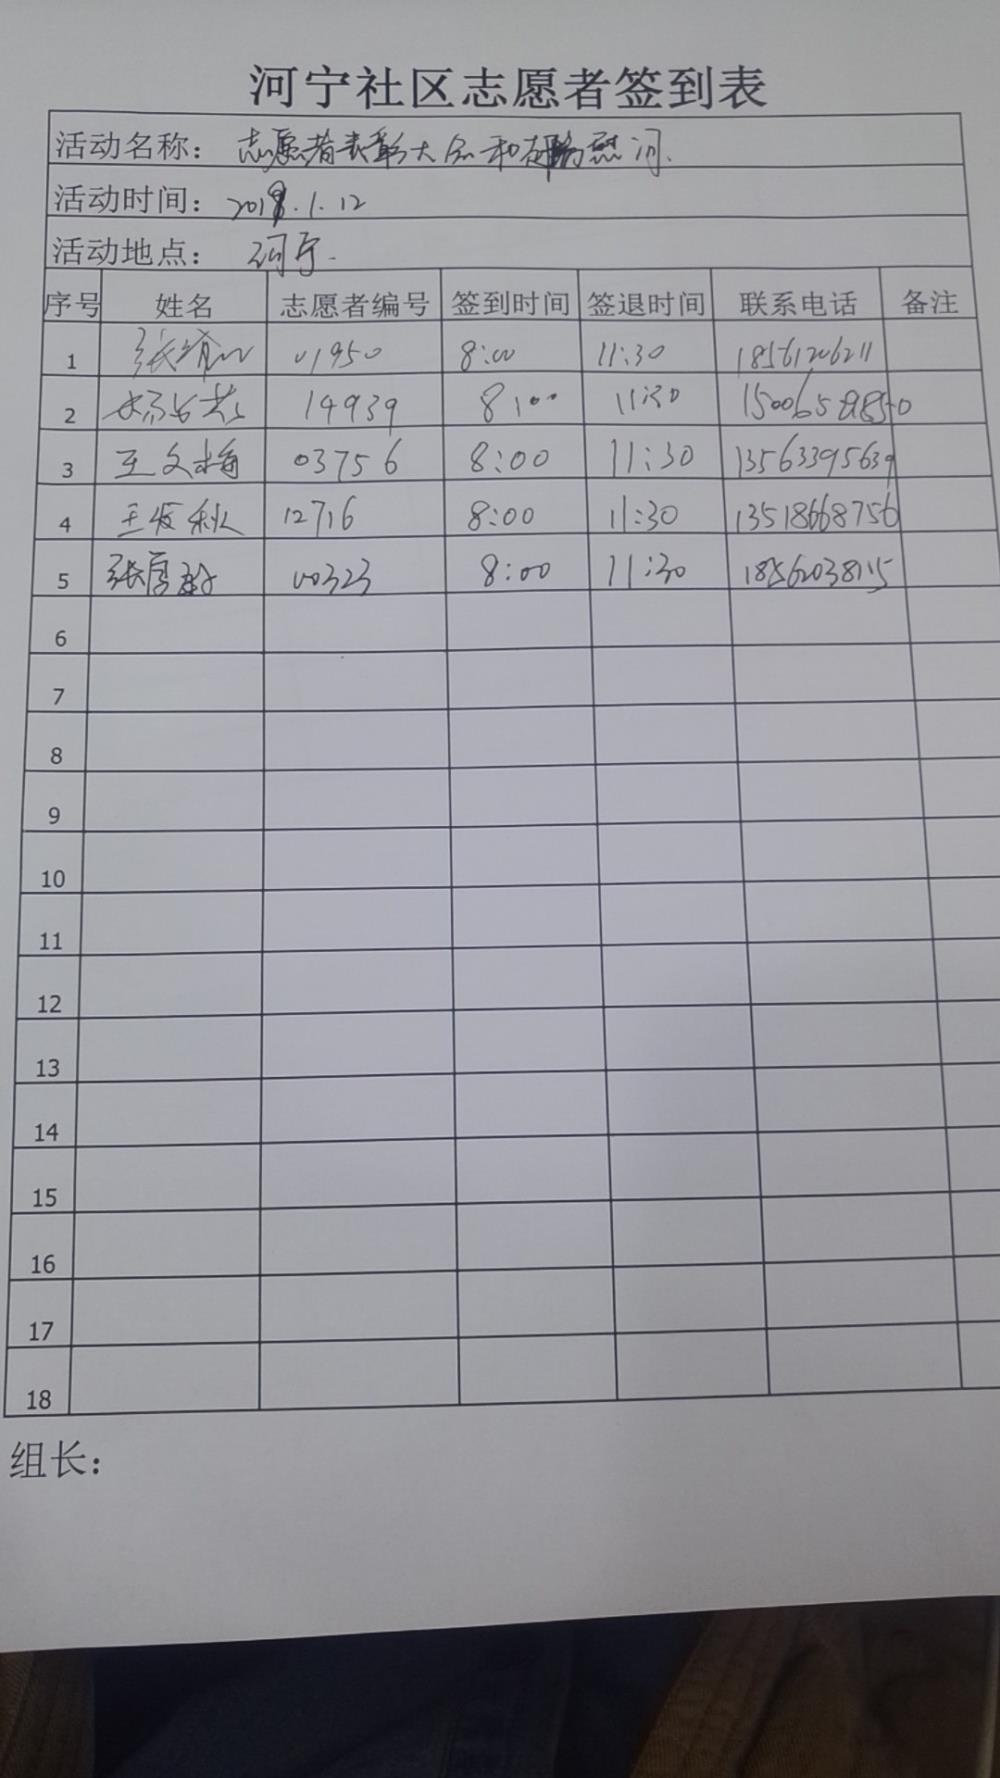 河宁社区志愿者签到表
活动名称： 志愿者表彰大会和春节慰问.
活动时间： 2018.1.12
活动地点： 河宁.
序号 姓名 志愿者编号 签到时间 签退时间 联系电话 备注
1 张 01950 8:00 11:30 18561206211
2 14939 8:00 11:30
3 王文梅 03756 8:00 11:30 13563395639
4 王发秋 12716 8:00 11:30 13518668756
5 张厚 00323 8:00 11:30 18562038115
6
7
8
9
10
11
12
13
14
15
16
17
18
组长：